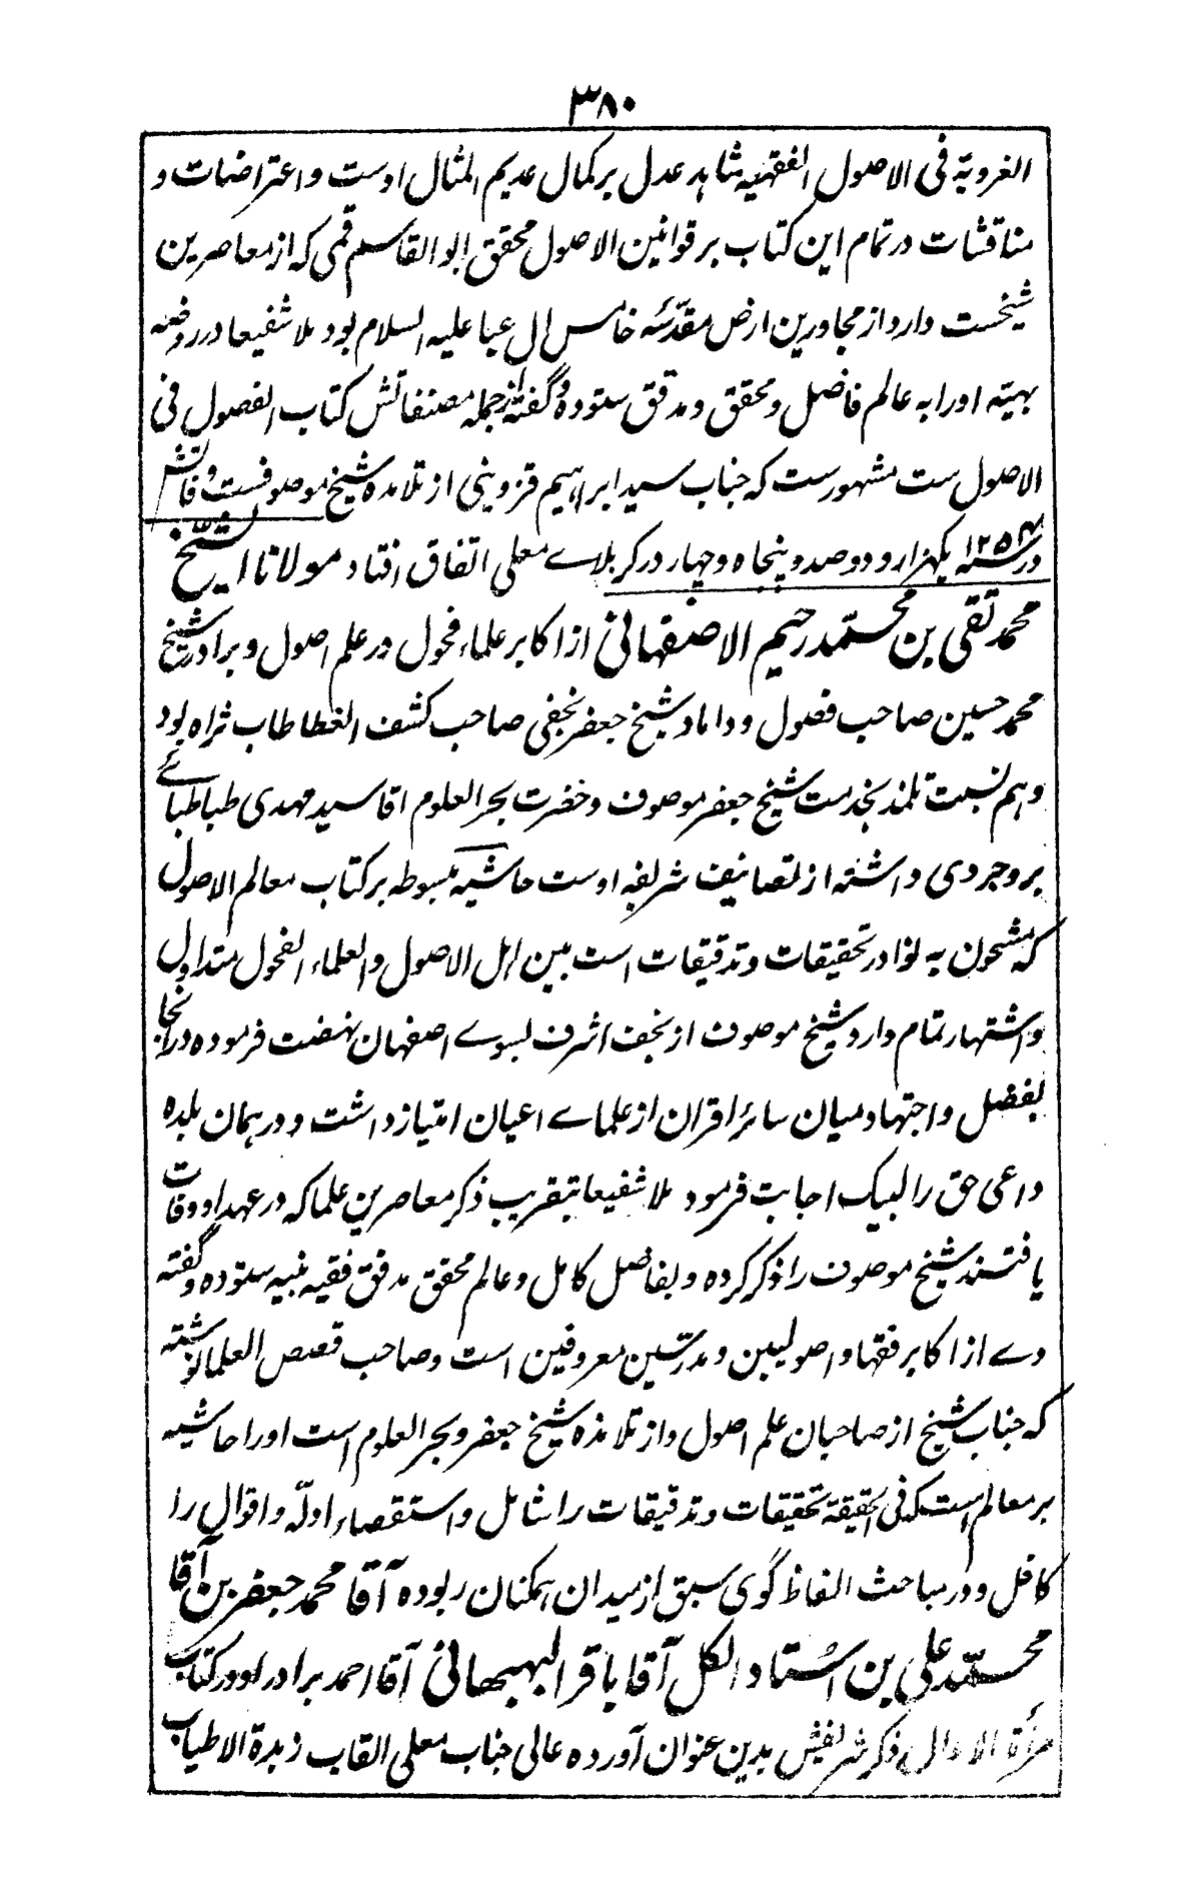 ۳۸۰
الغرویة فی الاصول الفقهیه شاهد عدل بر کمال عدیم المثال اوست و اعتراضات و
مناقشات در تمام این کتاب بر قوانین الاصول محقق ابوالقاسم قمی که از معاصرین
شیخست دارد از مجاورین ارض مقدّسه خامس ال عبا علیه السلام بود ملا شفیعا در روضه
بهیّه اورا به عالم فاضل و محقق و مدقق ستوده و گفته از جمله مصنفاتش کتاب الفصول فی
الاصول ست مشهورست که جناب سید ابراهیم قزوینی از تلامذه شیخ موصوفست وفاتش
در سنه ۱۲۵۴ یکهزار و دو صد و پنجاه و چهار در کربلاے معلی اتفاق افتاد مولانا الشیخ
محمد تقی بن محمّد رحیم الاصفهانی از اکابر علماء فحول در علم اصول و برادر شیخ
محمد حسین صاحب فصول و داماد شیخ جعفر نجفی صاحب کشف الغطا طاب ثراه بود
و هم نسبت تلمذ بخدمت شیخ جعفر موصوف و حضرت بحر العلوم اقا سید مهدی طباطبائے
بروجردی داشته از تصانیف شریفه اوست حاشیه مبسوطه بر کتاب معالم الاصول
که مشحون به نوادر تحقیقات و تدقیقات است بین اهل الاصول و العلماء الفحول متداول
و اشتهار تمام دارد شیخ موصوف از نجف اشرف بسوے اصفهان نهضت فرموده در انجا
بفضل و اجتهاد میان سائر اقران از علماے اعیان امتیاز داشت و در همان بلده
داعی حق را لبیک اجابت فرمود ملا شفیعا بتقریب ذکر معاصرین علما که در عهد او وفات
یافتند شیخ موصوف را ذکر کرده و بفاضل کامل و عالم محقق مدقق فقیه نبیه ستوده و گفته
وے از اکابر فقها و اصولیین و مدرّسین معروفین است و صاحب قصص العلما نوشته
که جناب شیخ از صاحبان علم اصول و از تلامذه شیخ جعفر و بحر العلوم است اورا حاشیه
بر معالم است که فی الحقیقة تحقیقات و تدقیقات را شامل و استقصاء ادلّه و اقوال را
کافل و در مباحث الفاظ گوی سبق از میدان همکنان ربوده آقا محمد جعفر بن آقا
محمّد علی بن اُستاد الکل آقا باقر البهبهانی آقا احمد برادر او در کتاب
مرأة الاحوال ذکر شریفش بدین عنوان آورده عالی جناب معلی القاب زبدة الاطیاب